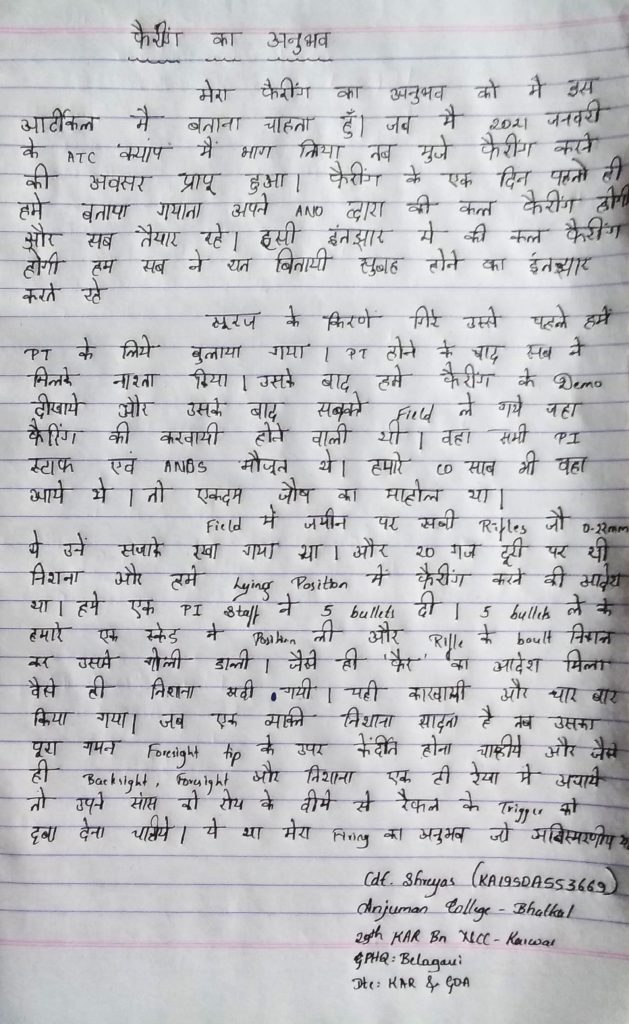 फैरींग का अनुभव
मेरा फैरींग का अनुभव को मे इस
आर्टीकल मै बताना चाहता हुँ। जब मै 2021 जनवरी
के ATC क्यांप मैं भाग लिया तब मुजे फैरींग करने
की अवसर प्रापू हुआ। फैरींग के एक दिन पहले ही
हमे बताया गयाता अपने ANO द्वारा की कल फैरींग होगी
और सब तैयार रहे। इसी इंतझार मे की कल फैरींग
होगी हम सब ने रात बितायी सुबह होने का इंतझार
करते रहे
सूरज के किरणे गिरे उस्से पहले हमें
PT के लिये बुलाया गया। PT होने के बाद सब ने
मिलके नाश्ता किया। उसके बाद हमे फैरींग के Demo
दीखाये और उसके बाद सबको Field ले गये जहा
फैरिंग की करवायी होने वाली थी। वहा सभी PI
स्टाफ एवं ANOS मौजूत थे। हमारे CO साब भी वहा
आये थे। तो एकदम जौष का माहोल था।
Field में जमीन पर सबी Rifles जौ 0-22mm
ये उनें सजाके रखा गया था। और 20 गज दूरी पर थी
निशना और हमे Lying Position में फैरींग करने की आदेश
था। हमे एक PI Staff ने 5 bullets दी। 5 bullets ले के
हमारे एक स्केड ने Position ली और Rifle के boult
कर उसमे गोली डाली। जैसे ही 'फैर' का आदेश मिला
वैसे ही निशाना सदी गयी। यही कारवायी और चार बार
किया गया। जब एक व्यक्ति निशाना सादता है तब उसका
पूरा Foresight tip के उपर केंदीत होना चाहीये और जैसे
ही Backsight, Foresight और निशाना एक ही रेया मे अचाये
तो उपने सांस को रोय के दीमे से रैफल के Trigger को
दबा देना चाहिये। ये था मेरा Firing का अनुभव जो अविस्मरणीय था
Cdt. Shreyas (KA19SDA553669)
Anjuman College - Bhatkal
29th KAR Bn NCC - Karwar
GPHQ: Belagavi
Dte: KAR & GOA